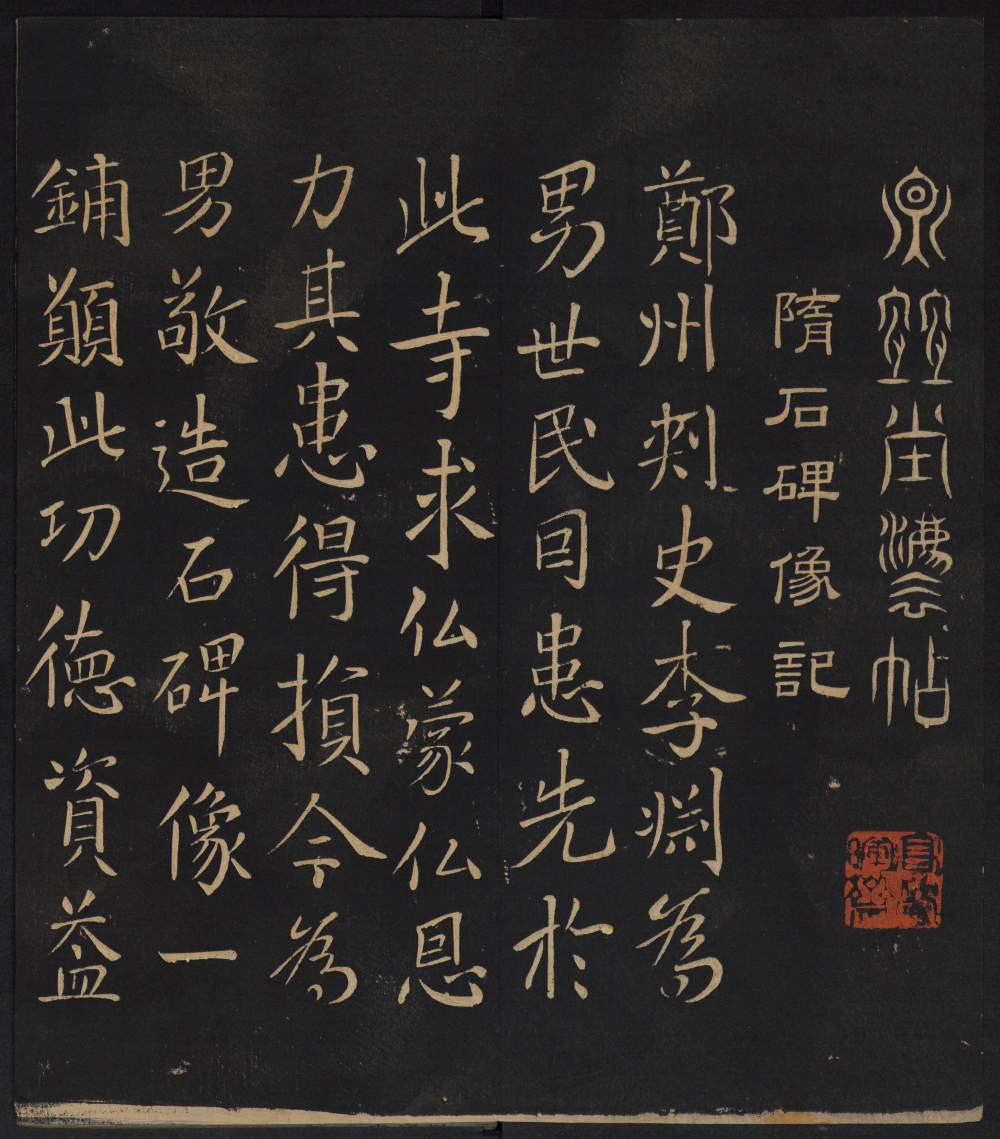 堂灋帖
隋石碑像記
鄭州刾史李渕為
男世民因患先於
此寺求仏蒙仏恩
力其患得損今為
男敬造石碑像一
鋪願此功徳資益